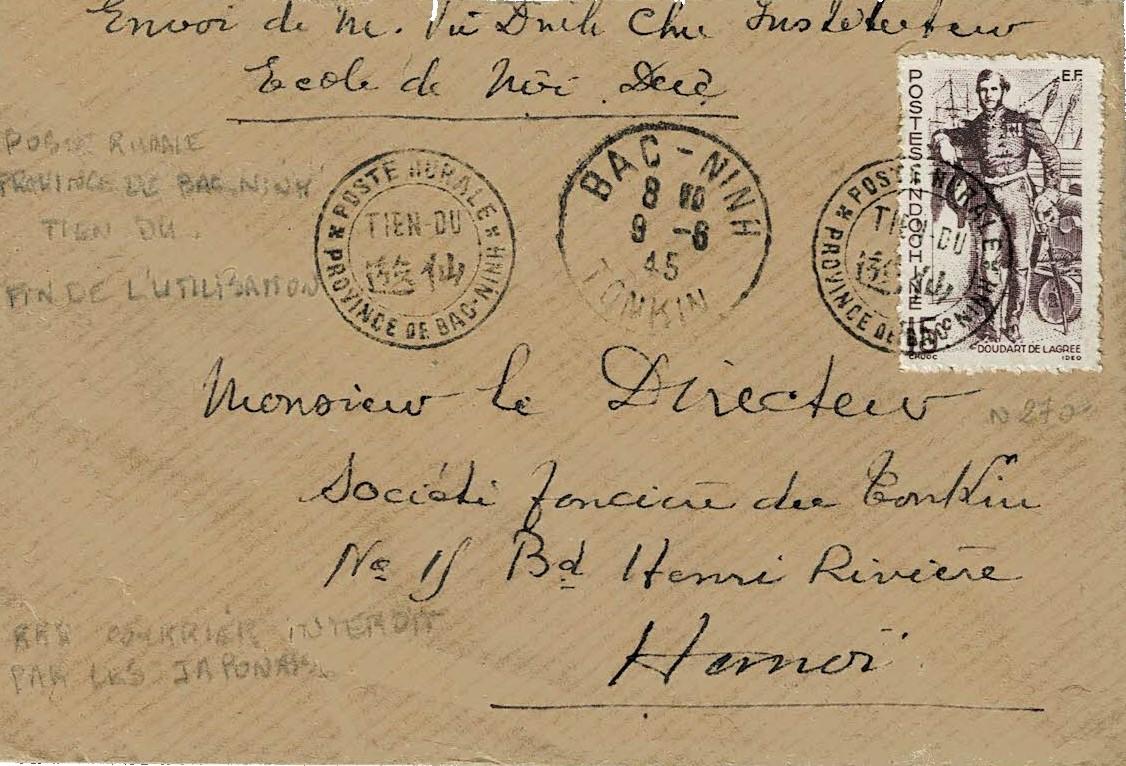 Envoi de M. Vũ Dinh Chu Instituteur
Ecole de Nôi Duê
POSTE RURALE
PROVINCE DE BAC-NINH
TIEN DU.
FIN DE L'UTILISATION
✶ POSTE RURALE ✶
TIEN-DU
仙
PROVINCE DE BAC-NINH
BAC-NINH
8
9 -6
45
TONKIN
✶ POSTE RURALE ✶
TIEN-DU
仙
PROVINCE DE BAC-NINH
POSTES INDOCHINE
E.F.
15c
DOUDART DE LAGREE
IDEO
Monsieur le Directeur
N 270
Société foncière du Tonkin
No 15 Bd Henri Rivière
COURRIER INTERDIT
PAR LES JAPONAIS
Hanoï